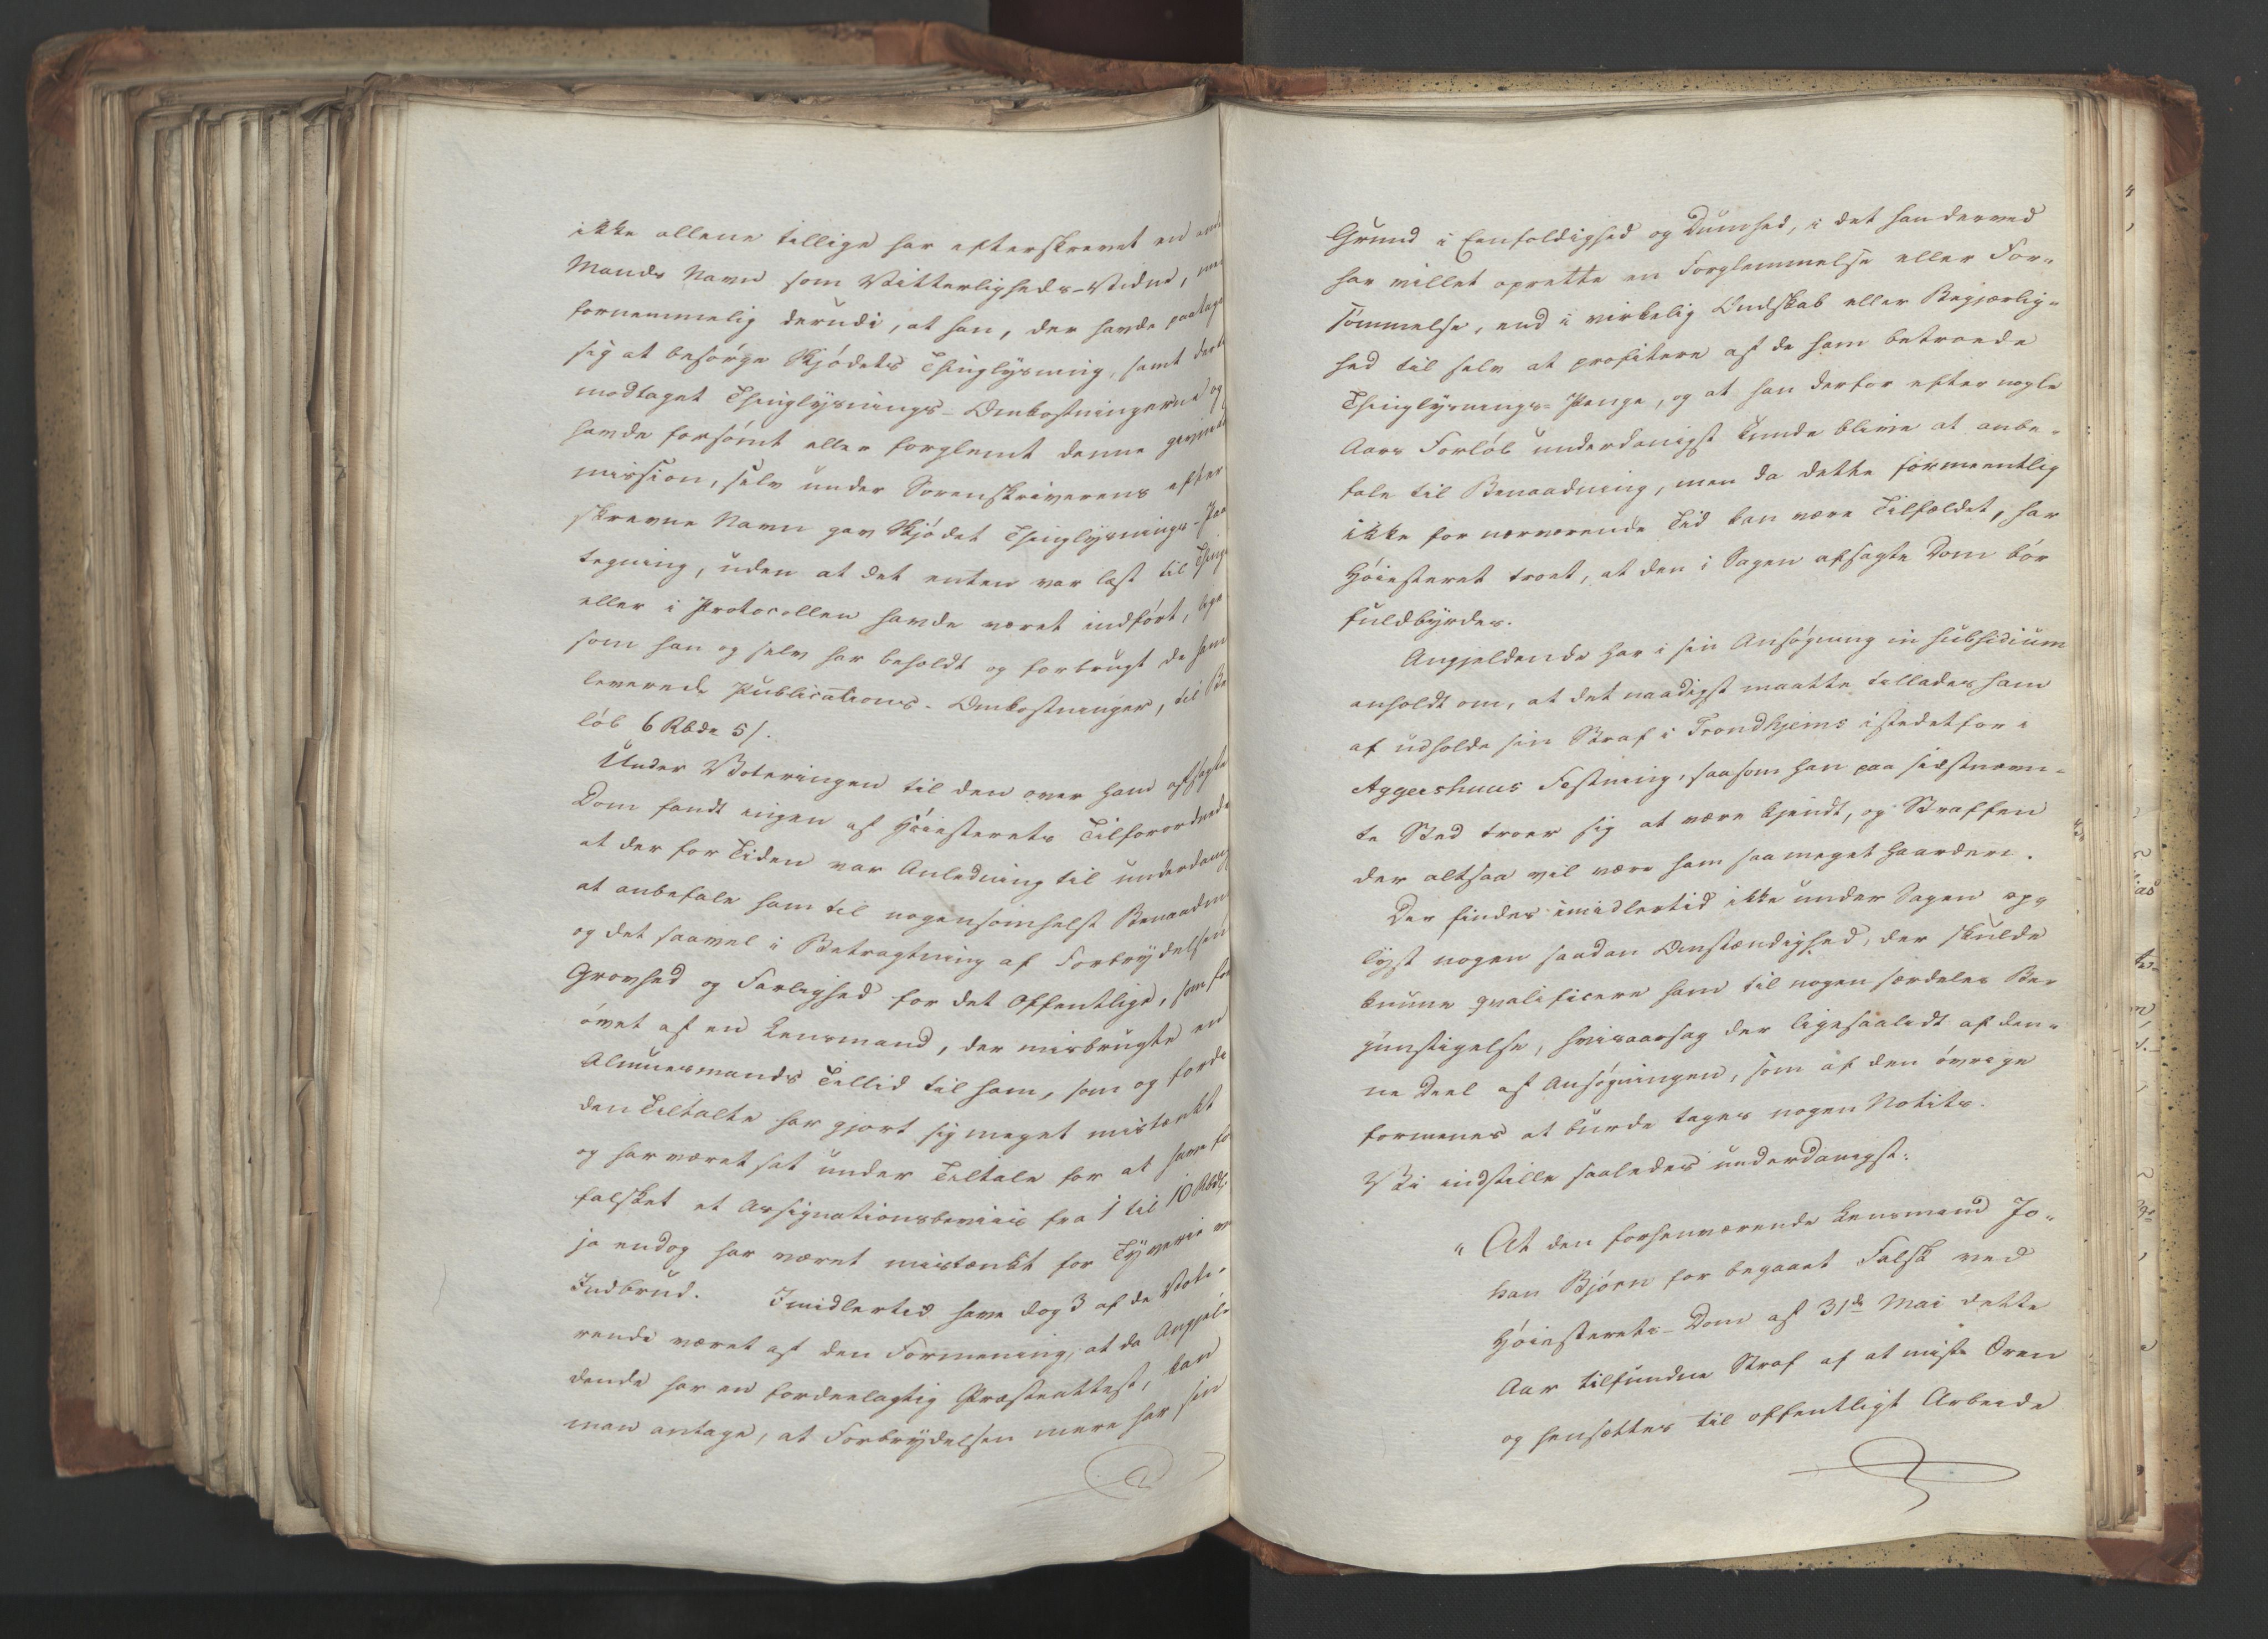 ikke allene tillige har efterskrevet en
Mands Navn som Vitterligheds-Vidne,
fornemmelig derudi, at han, der havde paataget
sig at besørge Skjødets Thinglysning, samt
modtaget Thinglysnings-Omkostningerne og
havde forsømt eller forglemt denne
mission, selv under Sorenskriverens efter
skrevne Navn gav Skjødet Thinglysnings-Paa
tegning, uden at det enten var læst til Thinge
eller i Protocollen havde været indført, lige
som han og selv har beholdt og forbrugt de ham
leverede Publications-Omkostninger, til Be
løb 6 Rbdr 5/.
Under Voteringen til den over ham afsagte
Dom fandt ingen af Høiesterets Tilforordnede
at der for Tiden var Anledning til underdanigst
at anbefale ham til nogensomhelst Benaadning
og det saavel i Betragtning af Forbrydelsens
Grovhed og Farlighed for det Offentlige, som
øvet af en Lensmand, der misbrugte en
Almuesmands Tillid til ham, som og fordi
den Tiltalte har gjort sig meget mistænkt
og har været sat under Tiltale for at have for
falsket et Assignationsbeviis fra 1 til 10 Rbdr
ja endog har været mistænkt for Tyverie
Indbrud. Imidlertid have dog 3 af de Vote-
rende været af den Formening, at da Angjel-
dende har en fordeelagtig Præsteattest, kan
man antage, at Forbrydelsen mere har sin
Grund i Eenfoldighed og Dumhed, i det han derved
har villet oprette en Forglemmelse eller For-
sømmelse, end i virkelig Ondskab eller Begjærlig-
hed til selv at profitere af de ham betroede
Thinglysnings-Penge, og at han derfor efter nogle
Aars Forløb underdanigst kunde blive at anbe-
fale til Benaadning, men da dette formeentlig
ikke for nærværende Tid kan være Tilfældet, har
Høiesteret troet, at den i Sagen afsagte Dom bør
fuldbyrdes.
Angjeldende har i sin Ansøgning in subsidium
anholdt om, at det naadigst maatte tillades ham
af udholde sin Straf i Trondhjems istedetfor i
Aggershuus Festning, saasom han paa sidstnævn-
te Sted troer sig at være kjendt, og Straffen
der altsaa vil være ham saa meget haardere.
Der findes imidlertid ikke under Sagen op-
lyst nogen saadan Omstændighed, der skulde
kunne qvalificere ham til nogen særdeles Be-
gunstigelse, hvisaarsag der ligesaalidt af den-
ne Deel af Ansøgningen, som af den øvrige
formenes at burde tages nogen Notits.
Vi indstille saaledes underdanigst:
"At den forhenværende Lensmand Jo-
han Bjørn for begaaet Falsk ved
Høiesterets-Dom af 31de Mai dette
Aar tilfundne Straf af at miste Æren
og hensættes til offentligt Arbeide